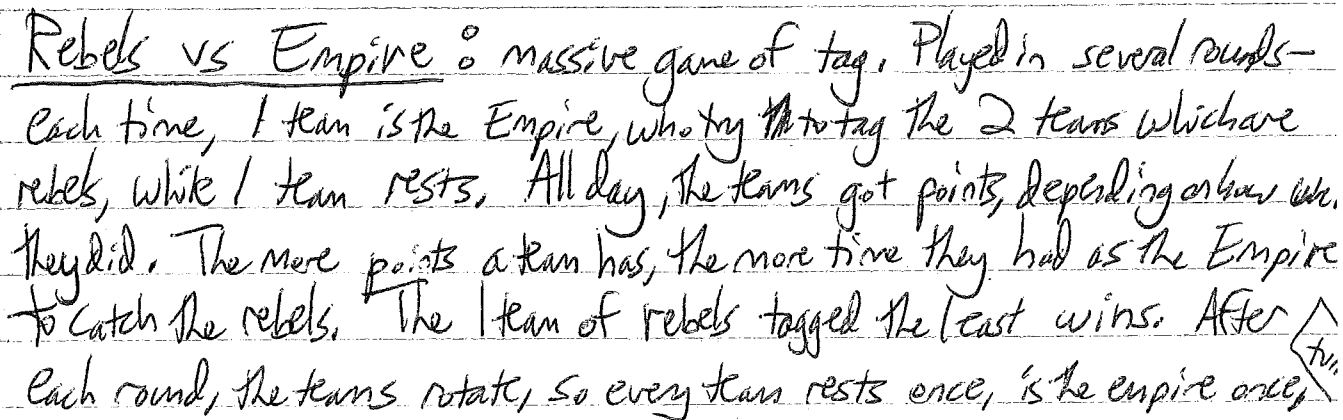 Rebels vs Empire : massive game of tag. Played in several rounds-
each time, 1 team is the Empire, who try to tag the 2 teams which are
rebels, while 1 team rests. All day, the teams got points, depending on how
they did. The more points a team has, the more time they had as the Empire
to catch the rebels. The 1 team of rebels tagged the least wins. After
each round, the teams rotate, so every team rests once, is the empire once,